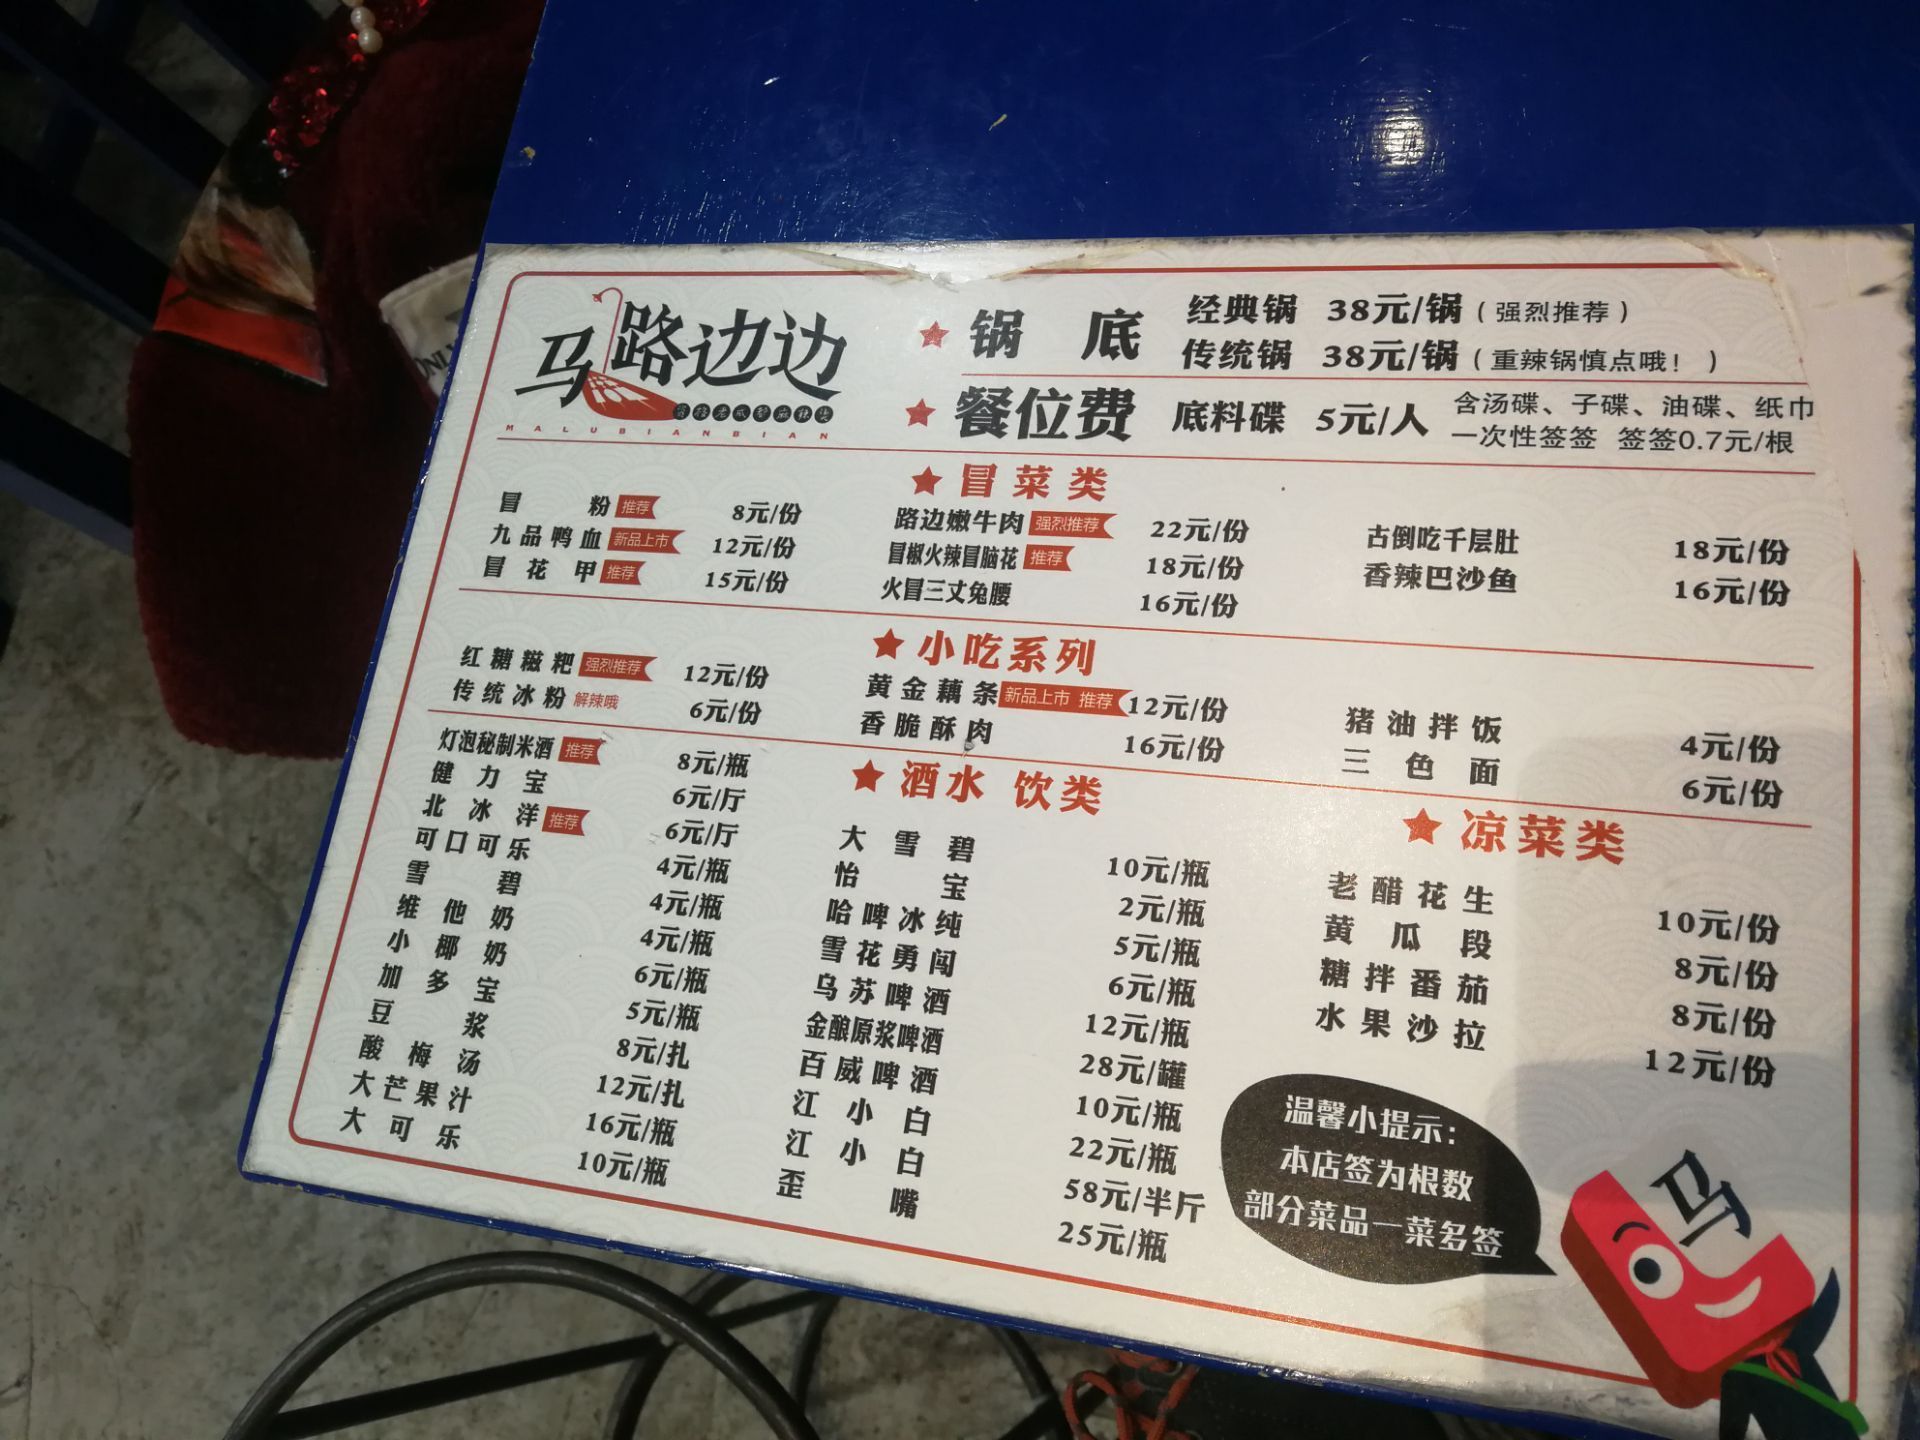 马路边边
MALUBIANBIAN
★ 锅底 经典锅 38元/锅（强烈推荐）
传统锅 38元/锅（重辣锅慎点哦！）
★ 餐位费 底料碟 5元/人 含汤碟、子碟、油碟、纸巾
一次性签签 签签0.7元/根
★ 冒菜类
冒粉 推荐 8元/份
九品鸭血 新品上市 12元/份
冒花甲 推荐 15元/份
路边嫩牛肉 强烈推荐 22元/份
冒椒火辣冒脑花 推荐 18元/份
火冒三丈兔腰 16元/份
古倒吃千层肚 18元/份
香辣巴沙鱼 16元/份
★ 小吃系列
红糖糍粑 强烈推荐 12元/份
传统冰粉 解辣哦 6元/份
黄金藕条 新品上市 推荐 12元/份
香脆酥肉 16元/份
猪油拌饭 4元/份
三色面 6元/份
★ 酒水 饮类
灯泡秘制米酒 推荐 8元/瓶
健力宝 6元/厅
北冰洋 推荐 6元/厅
可口可乐 4元/瓶
雪碧 4元/瓶
维他奶 4元/瓶
小椰奶 6元/瓶
加多宝 5元/瓶
豆浆 8元/扎
酸梅汤 12元/扎
大芒果汁 16元/瓶
大可乐 10元/瓶
大雪碧 10元/瓶
怡宝 2元/瓶
哈啤冰纯 5元/瓶
雪花勇闯 6元/瓶
乌苏啤酒 12元/瓶
金酿原浆啤酒 28元/罐
百威啤酒 10元/瓶
江小白 22元/瓶
江小白 58元/半斤
歪嘴 25元/瓶
★ 凉菜类
老醋花生 10元/份
黄瓜段 8元/份
糖拌番茄 8元/份
水果沙拉 12元/份
温馨小提示：
本店签为根数
部分菜品一菜多签
马